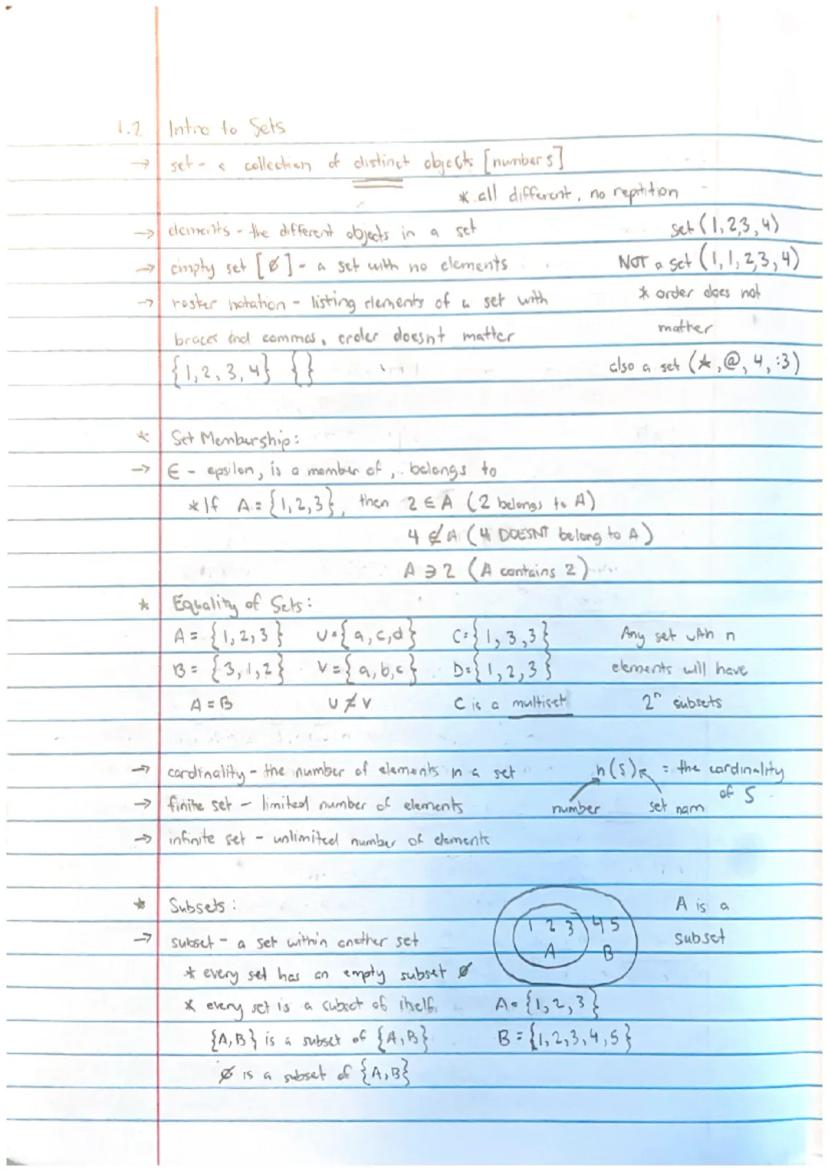 1.2 Intro to Sets
→ set - a collection of distinct objects [numbers]
* all different, no reptition
→ elements - the different objects in a set
set (1,2,3,4)
→ empty set [Ø] - a set with no elements
NOT a set (1,1,2,3,4)
→ roster notation - listing elements of a set with
* order does not
braces and commas, order doesnt matter
matter
{1,2,3,4} {}
also a set (★,@,4,:3)
* Set Membership:
→ ∈ - epsilon, is a member of, belongs to
* If A = {1,2,3}, then 2 ∈ A (2 belongs to A)
4 ∉ A (4 DOESNT belong to A)
A ∋ 2 (A contains 2)
* Equality of Sets:
A = {1,2,3} U = {a,c,d} C = {1,3,3} Any set with n
B = {3,1,2} V = {a,b,c} D = {1,2,3} elements will have
A = B U ≠ V C is a multiset 2ⁿ subsets
→ cardinality - the number of elements in a set
n(S) = the cardinality
of S
→ finite set - limited number of elements
number set nam
→ infinite set - unlimited number of elements
* Subsets:
1 2 3 4 5
A B
A is a
subset
→ subset - a set within another set
* every set has an empty subset Ø
* every set is a subset of itself.
A = {1,2,3}
{A,B} is a subset of {A,B}
B = {1,2,3,4,5}
Ø is a subset of {A,B}